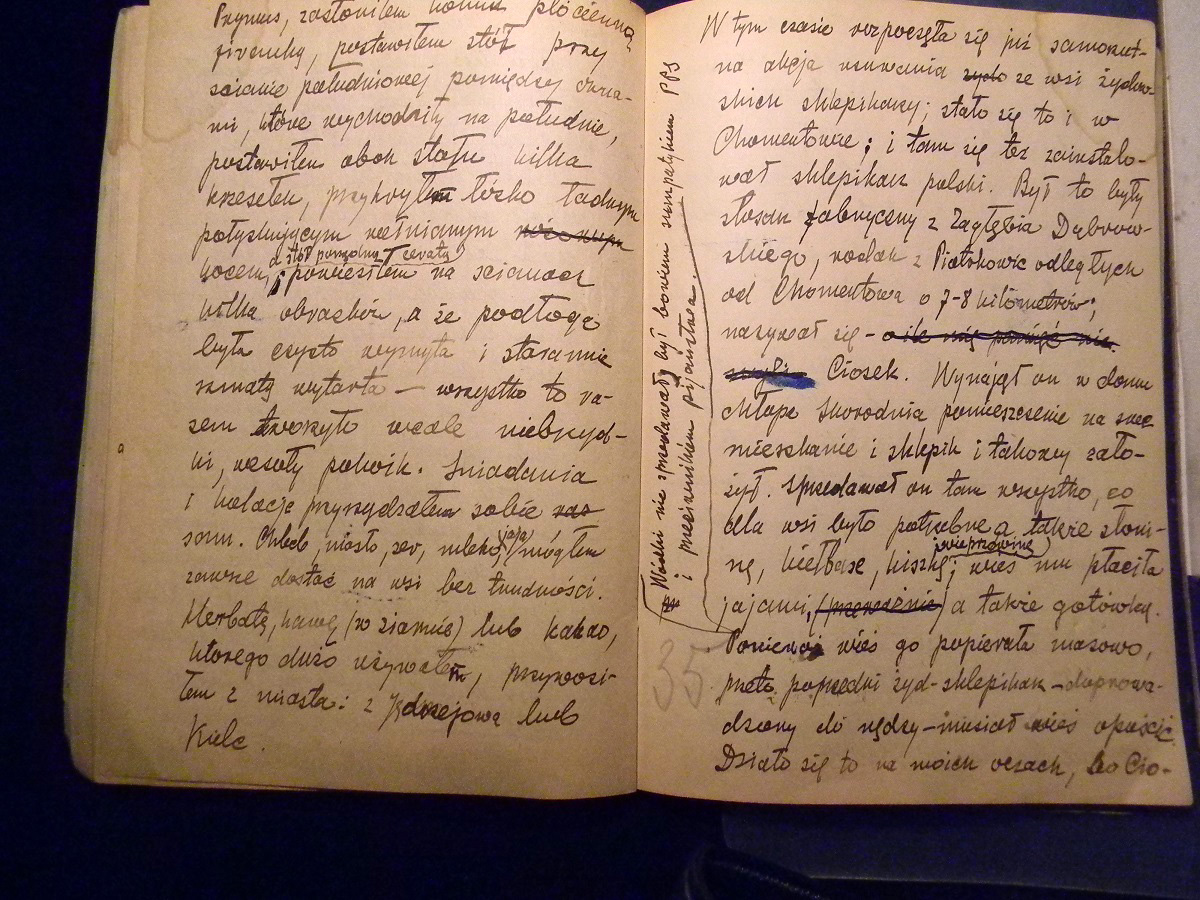 Prymus, zasłoniłem wnękę płócienną
firanką, postawiłem stół przy
ścianie południowej pomiędzy okna-
mi, które wychodziły na południe,
postawiłem obok stołu kilka
krzesełek, przykryłem łóżko ładnym
połyskującym wełnianym
a stół porządną ceratą
kocem, powiesiłem na ścianach
kilka obrazków, a że podłoga
była czysto wymyta i starannie
szmatą wytarta — wszystko to ra-
zem tworzyło wcale niebrzyd-
ki, wesoły pokoik. Śniadania
i kolacje przyrządzałem sobie
sam. Chleb, masło, ser, mleko, jaja mogłem
zawsze dostać na wsi bez trudności.
Herbatę, kawę (w ziarnie) lub kakao,
którego dużo używałem, przywozi-
łem z miasta: z Jędrzejowa lub
Kielc.
Wódki nie sprzedawał, był bowiem sympatykiem PPS
i przeciwnikiem pijaństwa.
W tym czasie rozpoczęła się już samorzut-
na akcja usuwania ze wsi żydow-
skich sklepikarzy; stało się to i w
Chomentowie; i tam się też zainstalo-
wał sklepikarz polski. Był to były
ślusarz fabryczny z Zagłębia Dąbrow-
skiego, rodak z Piotrkowic odległych
od Chomentowa o 7-8 kilometrów;
nazywał się – o ile mię pamięć nie
myli – Ciosek. Wynajął on w domu
chłopa Skorodnia pomieszczenie na swe
mieszkanie i sklepik i takowy zało-
żył. Sprzedawał on tam wszystko, co
dla wsi było potrzebne a także słoni-
nę, kiełbasę, kiszkę, wieprzowinę; wieś mu płaciła
jajami, (przeważnie) a także gotówką.
Ponieważ wieś go popierała masowo,
przeto poprzedni żyd-sklepikarz – doprowa-
dzony do nędzy – musiał wieś opuścić.
Działo się to na moich oczach, bo Cio-
35